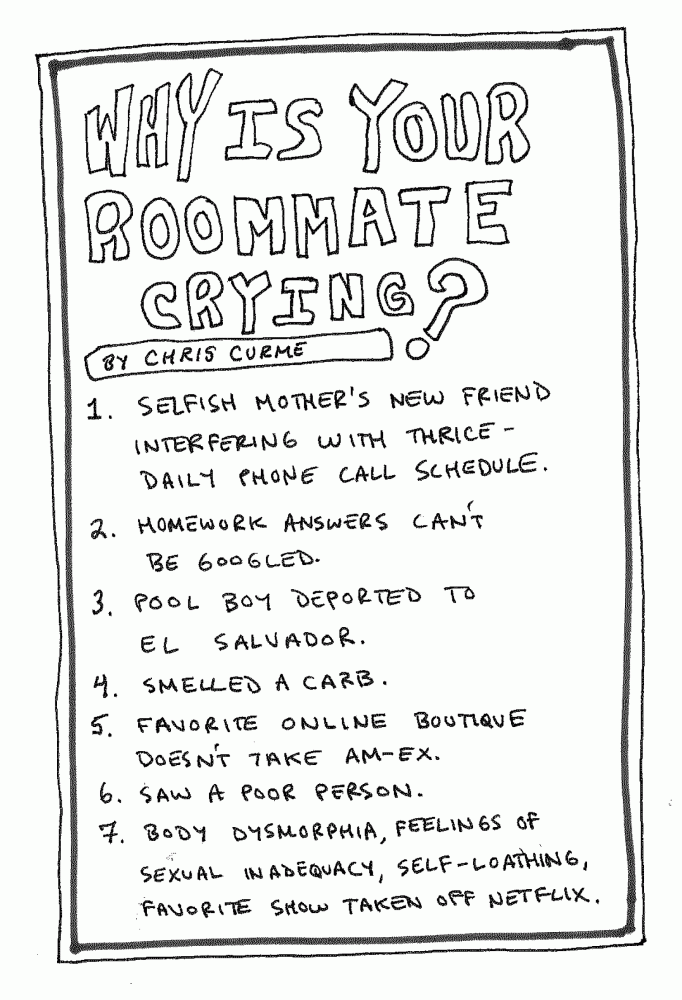 WHY IS YOUR
ROOMMATE
CRYING?
BY CHRIS CURME
1. SELFISH MOTHER'S NEW FRIEND
INTERFERING WITH THRICE-
DAILY PHONE CALL SCHEDULE.
2. HOMEWORK ANSWERS CAN'T
BE GOOGLED.
3. POOL BOY DEPORTED TO
EL SALVADOR.
4. SMELLED A CARB.
5. FAVORITE ONLINE BOUTIQUE
DOESN'T TAKE AM-EX.
6. SAW A POOR PERSON.
7. BODY DYSMORPHIA, FEELINGS OF
SEXUAL INADEQUACY, SELF-LOATHING,
FAVORITE SHOW TAKEN OFF NETFLIX.